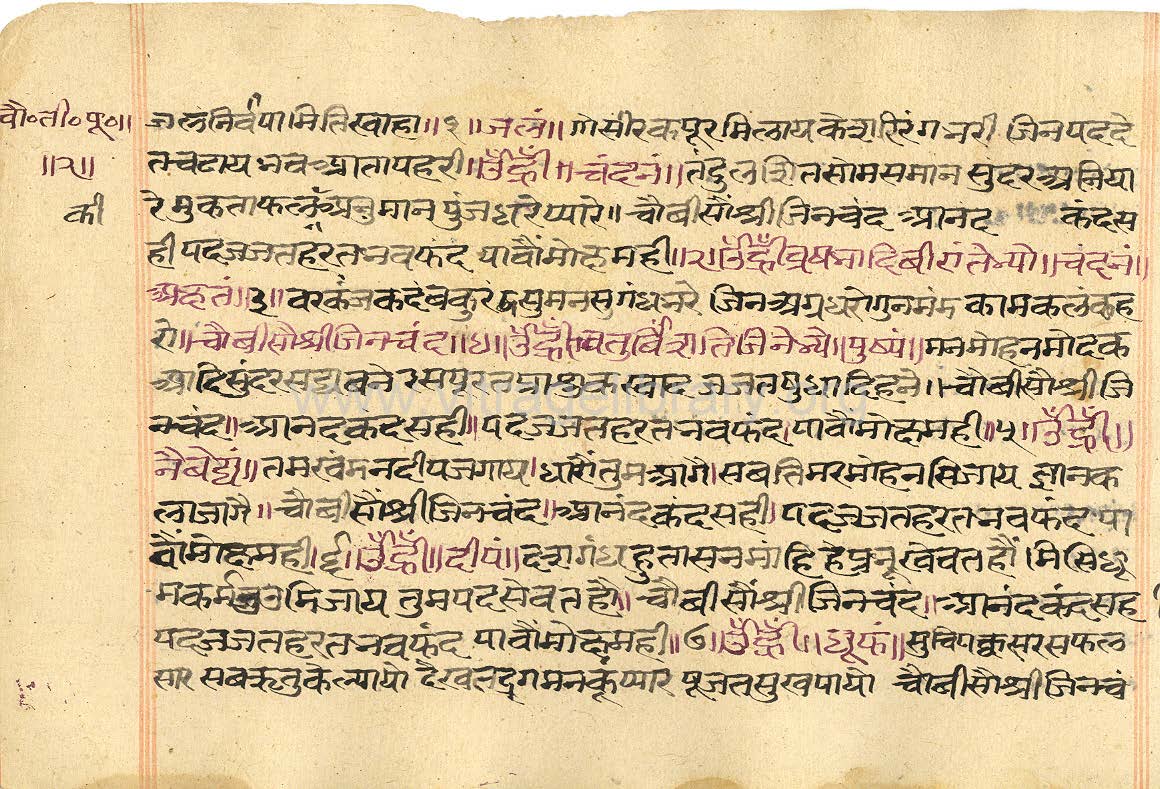 चौ॰ती॰पू॰॥
॥२॥
की
जलंनिर्वपामितिस्वाहा॥१॥जलं॥गोसीरकपूरमिलायकेशरिरंगभरी जिनपददे
तचढायभवआतापहरी॥ॐह्रीं॥चंदनं॥तंदुलशितसोमसमानसुंदरअनिया
रेमुकताफलकीँअनुमानपुंजधरेंप्यारे॥चौबीसौंश्रीजिनचंद आनद कंदस
हीपदजजतहरतभवफंद पावौंमोक्षमही॥२॥ॐह्रींव्रषभादिबीरांतेभ्यो॥चंदनं॥
अक्षतं॥३॥वरकंजकदंबकुरंडसुमनसुगंधभरे जिनअग्रधरोगुनमंड कामकलंकह
रो॥चौबीसौश्रीजिनचंद॥४॥ॐह्रींचतुर्विंशतिजिनेभ्यै॥पुष्पं॥मनमोहनमोदक
आदिसुंदरसद्यबने रसपुरतप्राशुकस्वाद जजतषुधादिहने॥चौबीसौंश्रीजि
नचंद॥आनंदकंदसही॥पदजजतहरतभवफंद।पावौंमोक्षमही॥५॥ॐह्रीं॥
नैबेद्यं॥तमखंडनदीपजगाय।धारोंतुमआगै।सबतिमरमोहनसिजाय ज्ञानक
लाजागै॥चौबीसौंश्रीजिनचंद॥आनंदकंदसही।पदजजतहरतभवफंद पा
वौंमोक्षमही।६।ॐह्रीं॥दीपं॥दशगंधहुतासनमांहिहेप्रभूखेवतहौं।मिसिधू
मकर्मजरिजाय तुमपदसेवतहौं॥चौबीसौंश्रीजिनचंद॥आनंदकंदसह
पदजजतहरतभवफंद पावौंमोक्षमही॥७॥ॐह्रीं॥धूपं॥सुचिपक्कसारसफल
सार सबऋतुकेल्यायो देखतद्रगमनकूंप्यार पूजतसुखपायो चौबीसौश्रीजिनचं
www.vitragelibrary.org